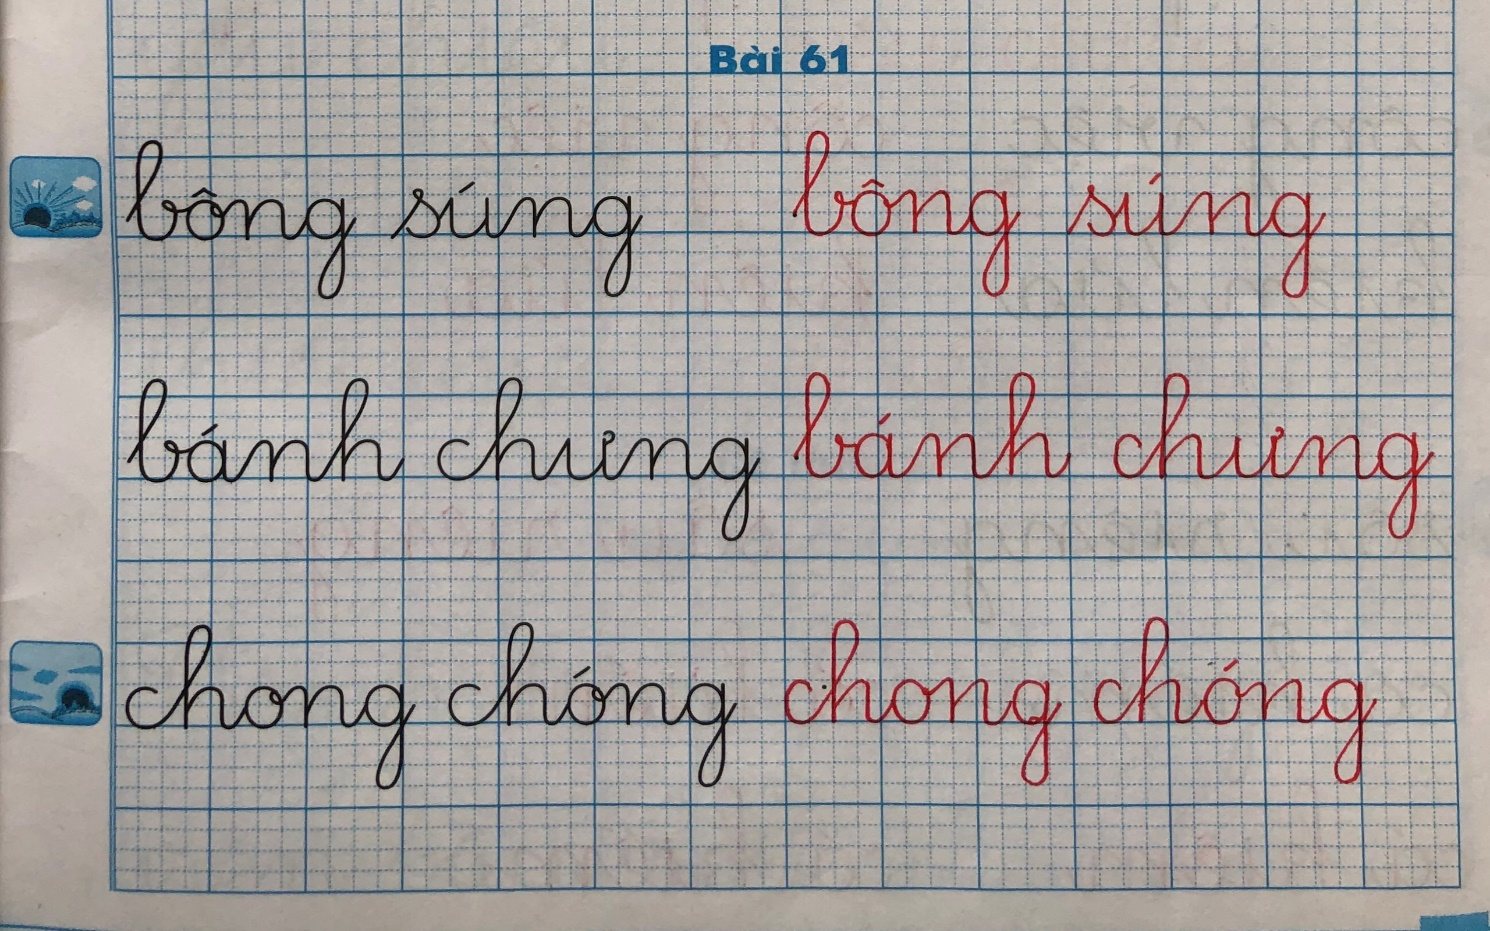 Bài 61
bông súng bông súng
bánh chưng bánh chưng
chong chóng chong chóng